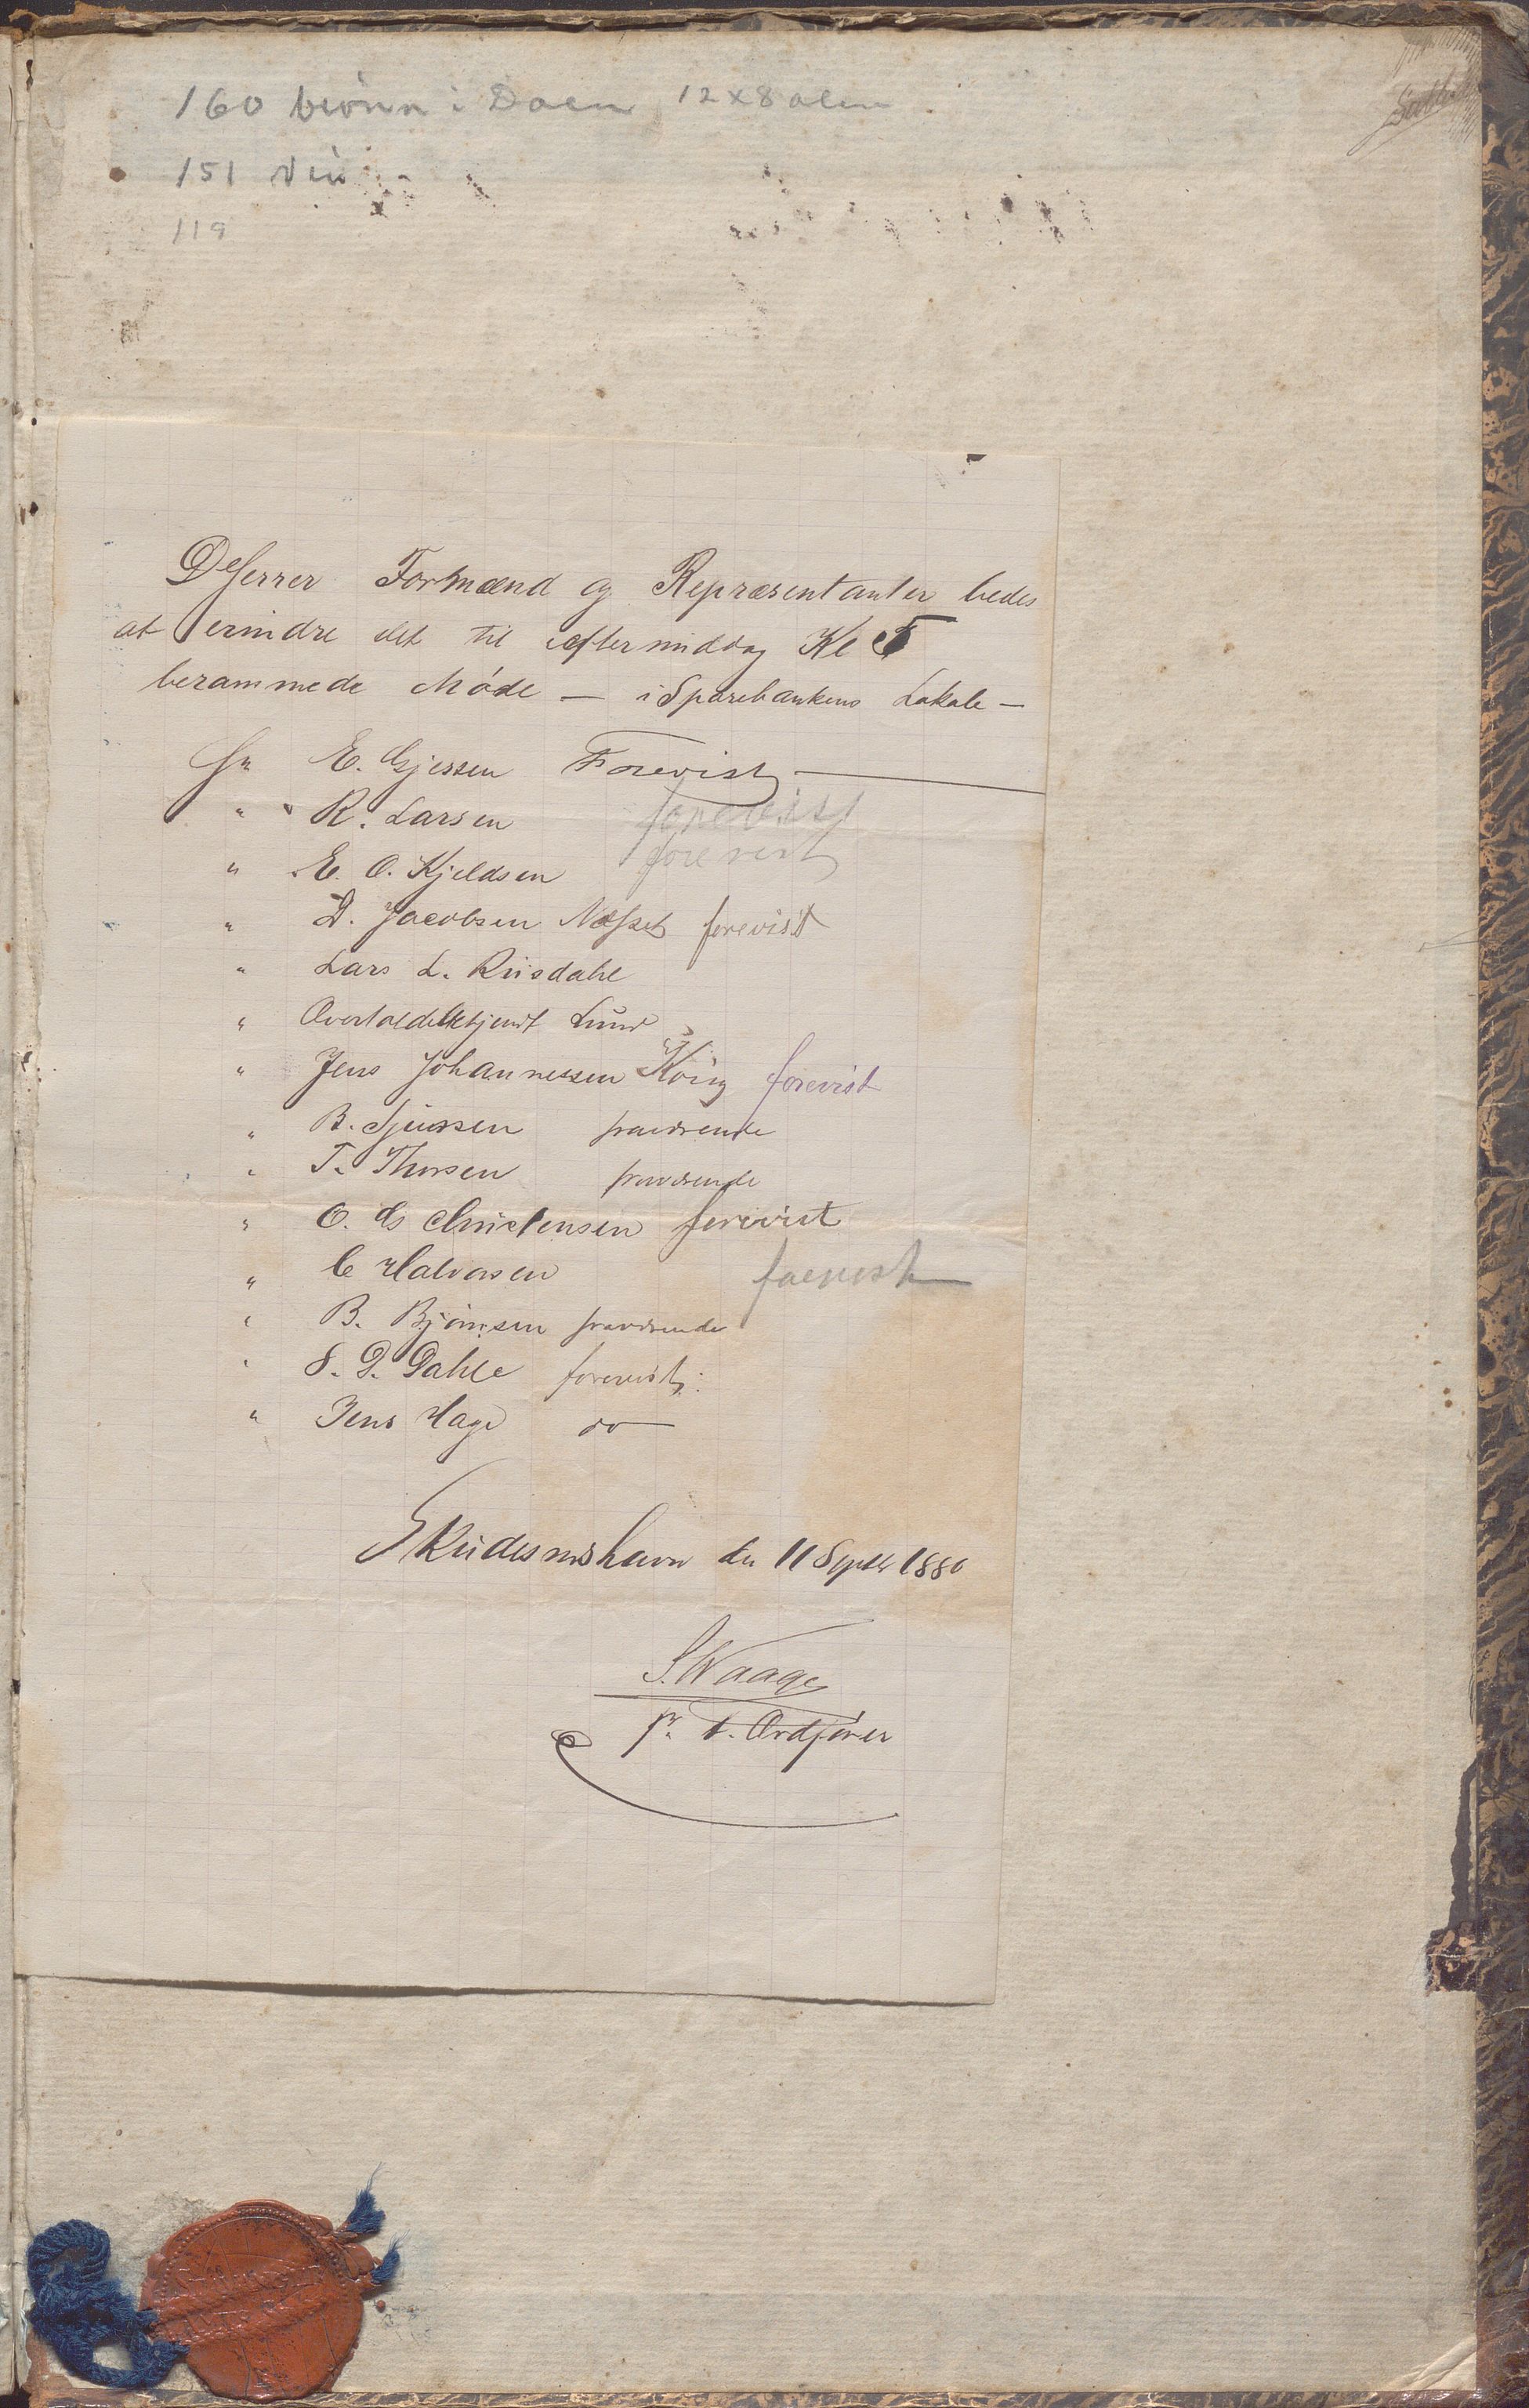 160 brönn i Daen 12x8 alen
151
119
DHerrer Formænd og Repræsentanter bedes
at erindre det til eftermiddag Kl 5
berammede Møde — i Sparebankens Lokale —
Hr E. Gjessen Forevist
" R. Larsen forevist
" E. O. Kjeldsen forevist
" D. Jacobsen Næsset forevist
" Lars L. Riisdahl
" Overtoldbetjent Lund
" Jens Johannessen König forevist
" B. Sjursen fraværende
" T. Thorsen fraværende
" O. G Christensen forevist
" C Halvorsen forevist
" B. Bjørnsen fraværende
" S. D. Dahle forevist
" Jens Hage do
Skudesneshavn den 11 Septbr 1880
S. Waage
p. t. Ordfører